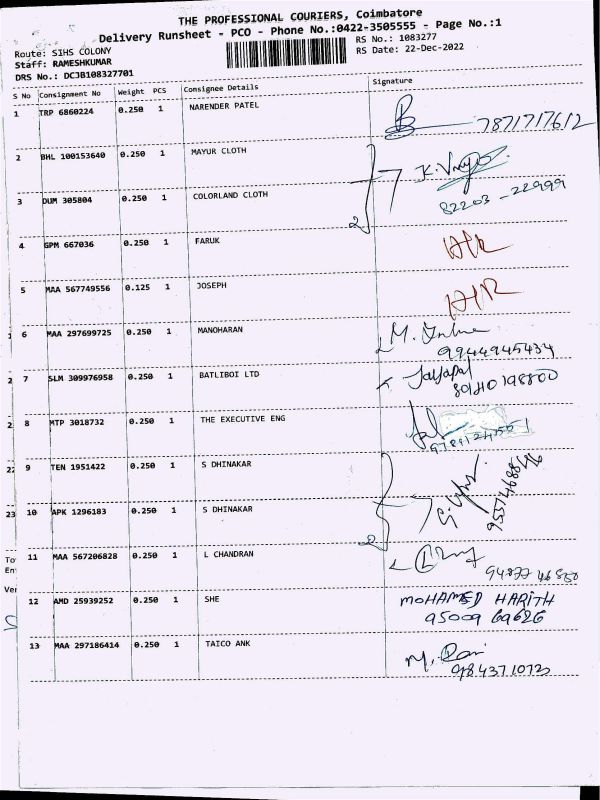 THE PROFESSIONAL COURIERS, Coimbatore
Delivery Runsheet - PCO - Phone No.:0422-3505555 - Page No.:1
Route: SIHS COLONY
RS No.: 1083277
Staff: RAMESHKUMAR
RS Date: 22-Dec-2022
DRS No.: DCJB108327701
S No Consignment No Weight PCS Consignee Details Signature
1 TRP 6860224 0.250 1 NARENDER PATEL
7871717612
2 BHL 100153640 0.250 1 MAYUR CLOTH
3 DUM 305804 0.250 1 COLORLAND CLOTH 82203 - 22999
2
4 GPM 667036 0.250 1 FARUK
5 MAA 567749556 0.125 1 JOSEPH
6 MAA 297699725 0.250 1 MANOHARAN M.
9944945434
7 SLM 309976958 0.250 1 BATLIBOI LTD Jaijapal
8 MTP 3018732 0.250 1 THE EXECUTIVE ENG
9 TEN 1951422 0.250 1 S DHINAKAR
10 APK 1296183 0.250 1 S DHINAKAR
2
11 MAA 567206828 0.250 1 L CHANDRAN
94877 46850
12 AMD 25939252 0.250 1 SHE MOHAMED HARITH
95009 69626
13 MAA 297186414 0.250 1 TAICO ANK M. Rani
984371073